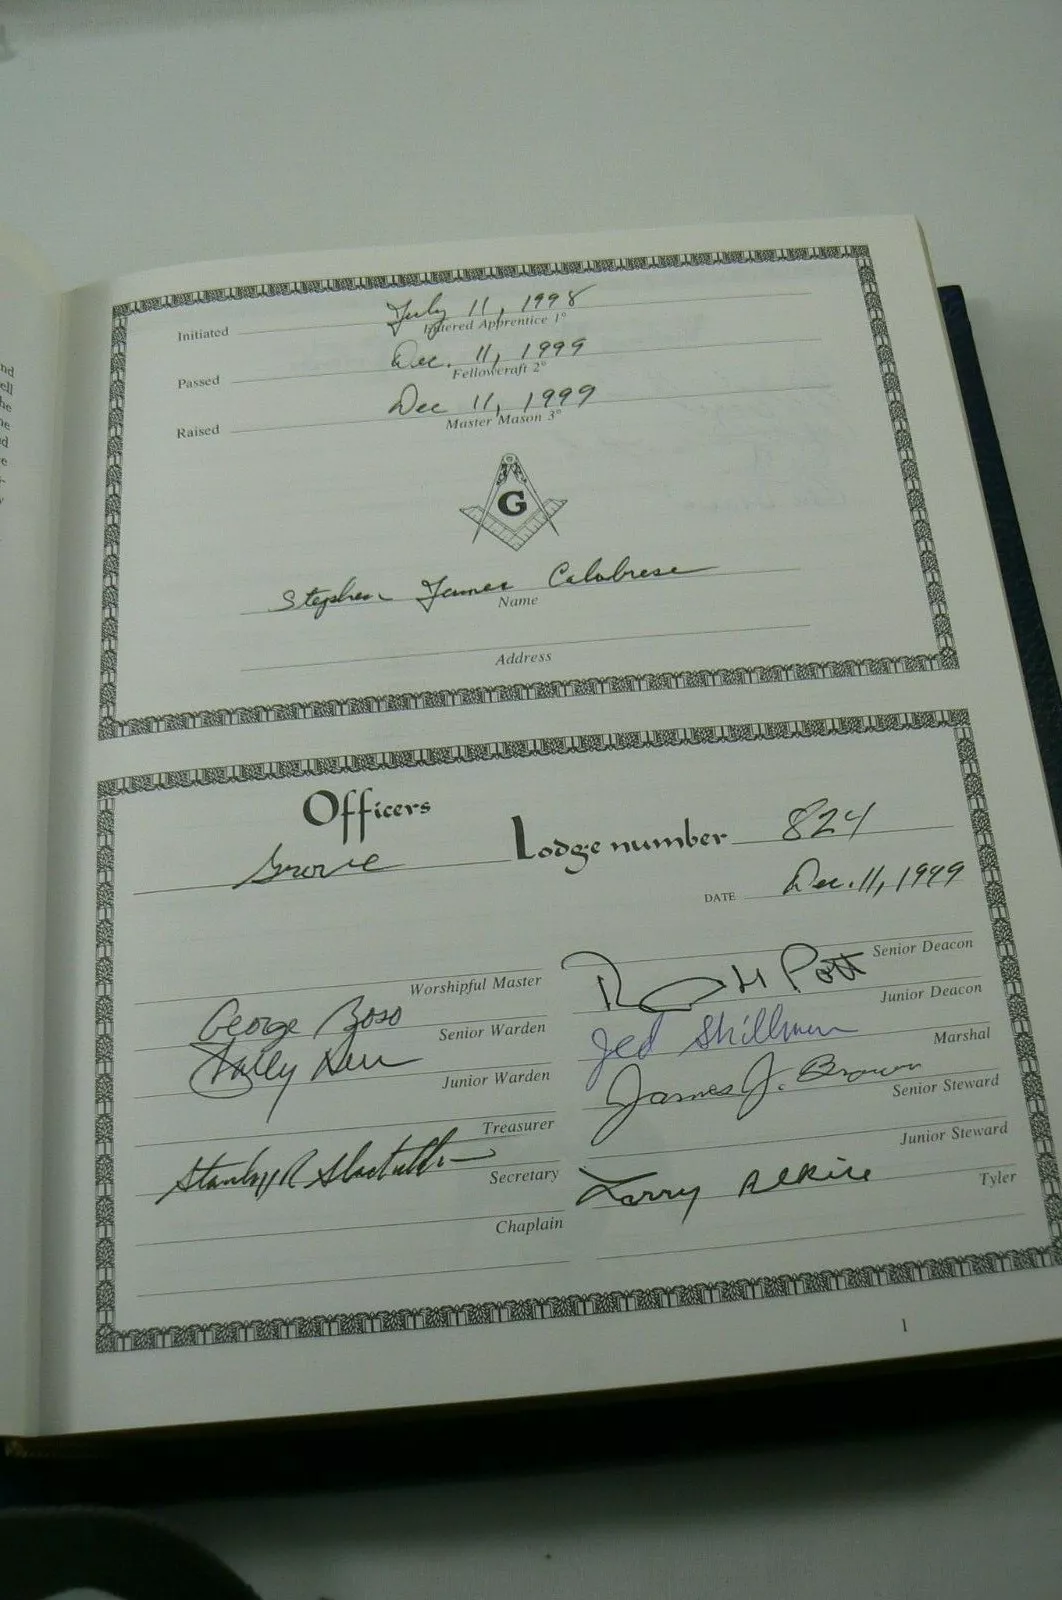 nd
ell
he
ne
d
e
y
Initiated July 11, 1998
Entered Apprentice 1°
Passed Dec. 11, 1999
Fellowcraft 2°
Raised Dec 11, 1999
Master Mason 3°
G
Stephen James Calabrese
Name
Address
Officers
Grove Lodge number 824
DATE Dec. 11, 1999
Worshipful Master
George Boso
Senior Warden
Junior Warden
Treasurer
Stanley R
Secretary
Chaplain
Senior Deacon
H Pott
Junior Deacon
Jed Skillman
Marshal
James J. Brown
Senior Steward
Junior Steward
Larry Alkire
Tyler
1